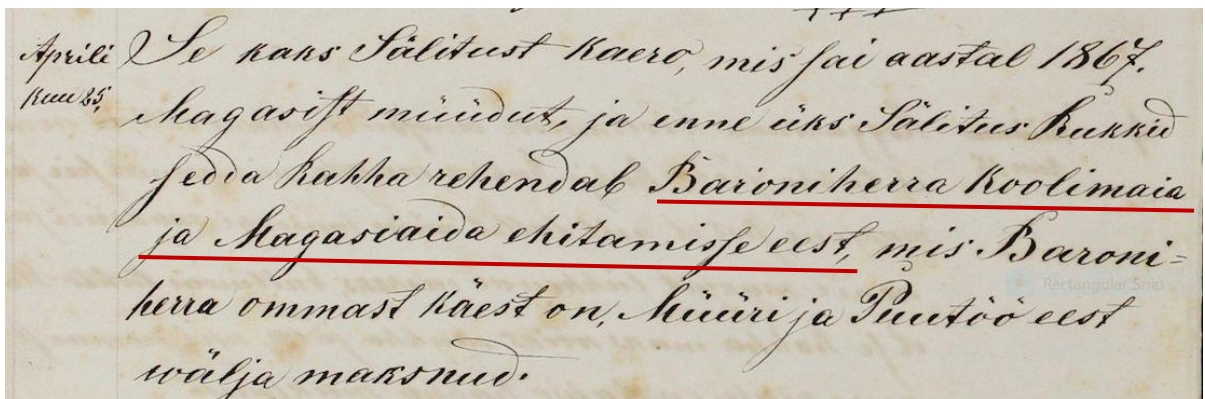 Aprili
kuu 25,
Se kaks Sälitust Kaero, mis sai aastal 1867.
Magasist müüdut, ja enne üks Sälitus Rukkid
sedda kahha rehendab Baroniherra Koolimaia
ja Magasiaida ehitamisse eest, mis Baroni=
herra ommast käest on, Müüri ja Puutöö eest
wälja maksnud.
Rectangular Snip